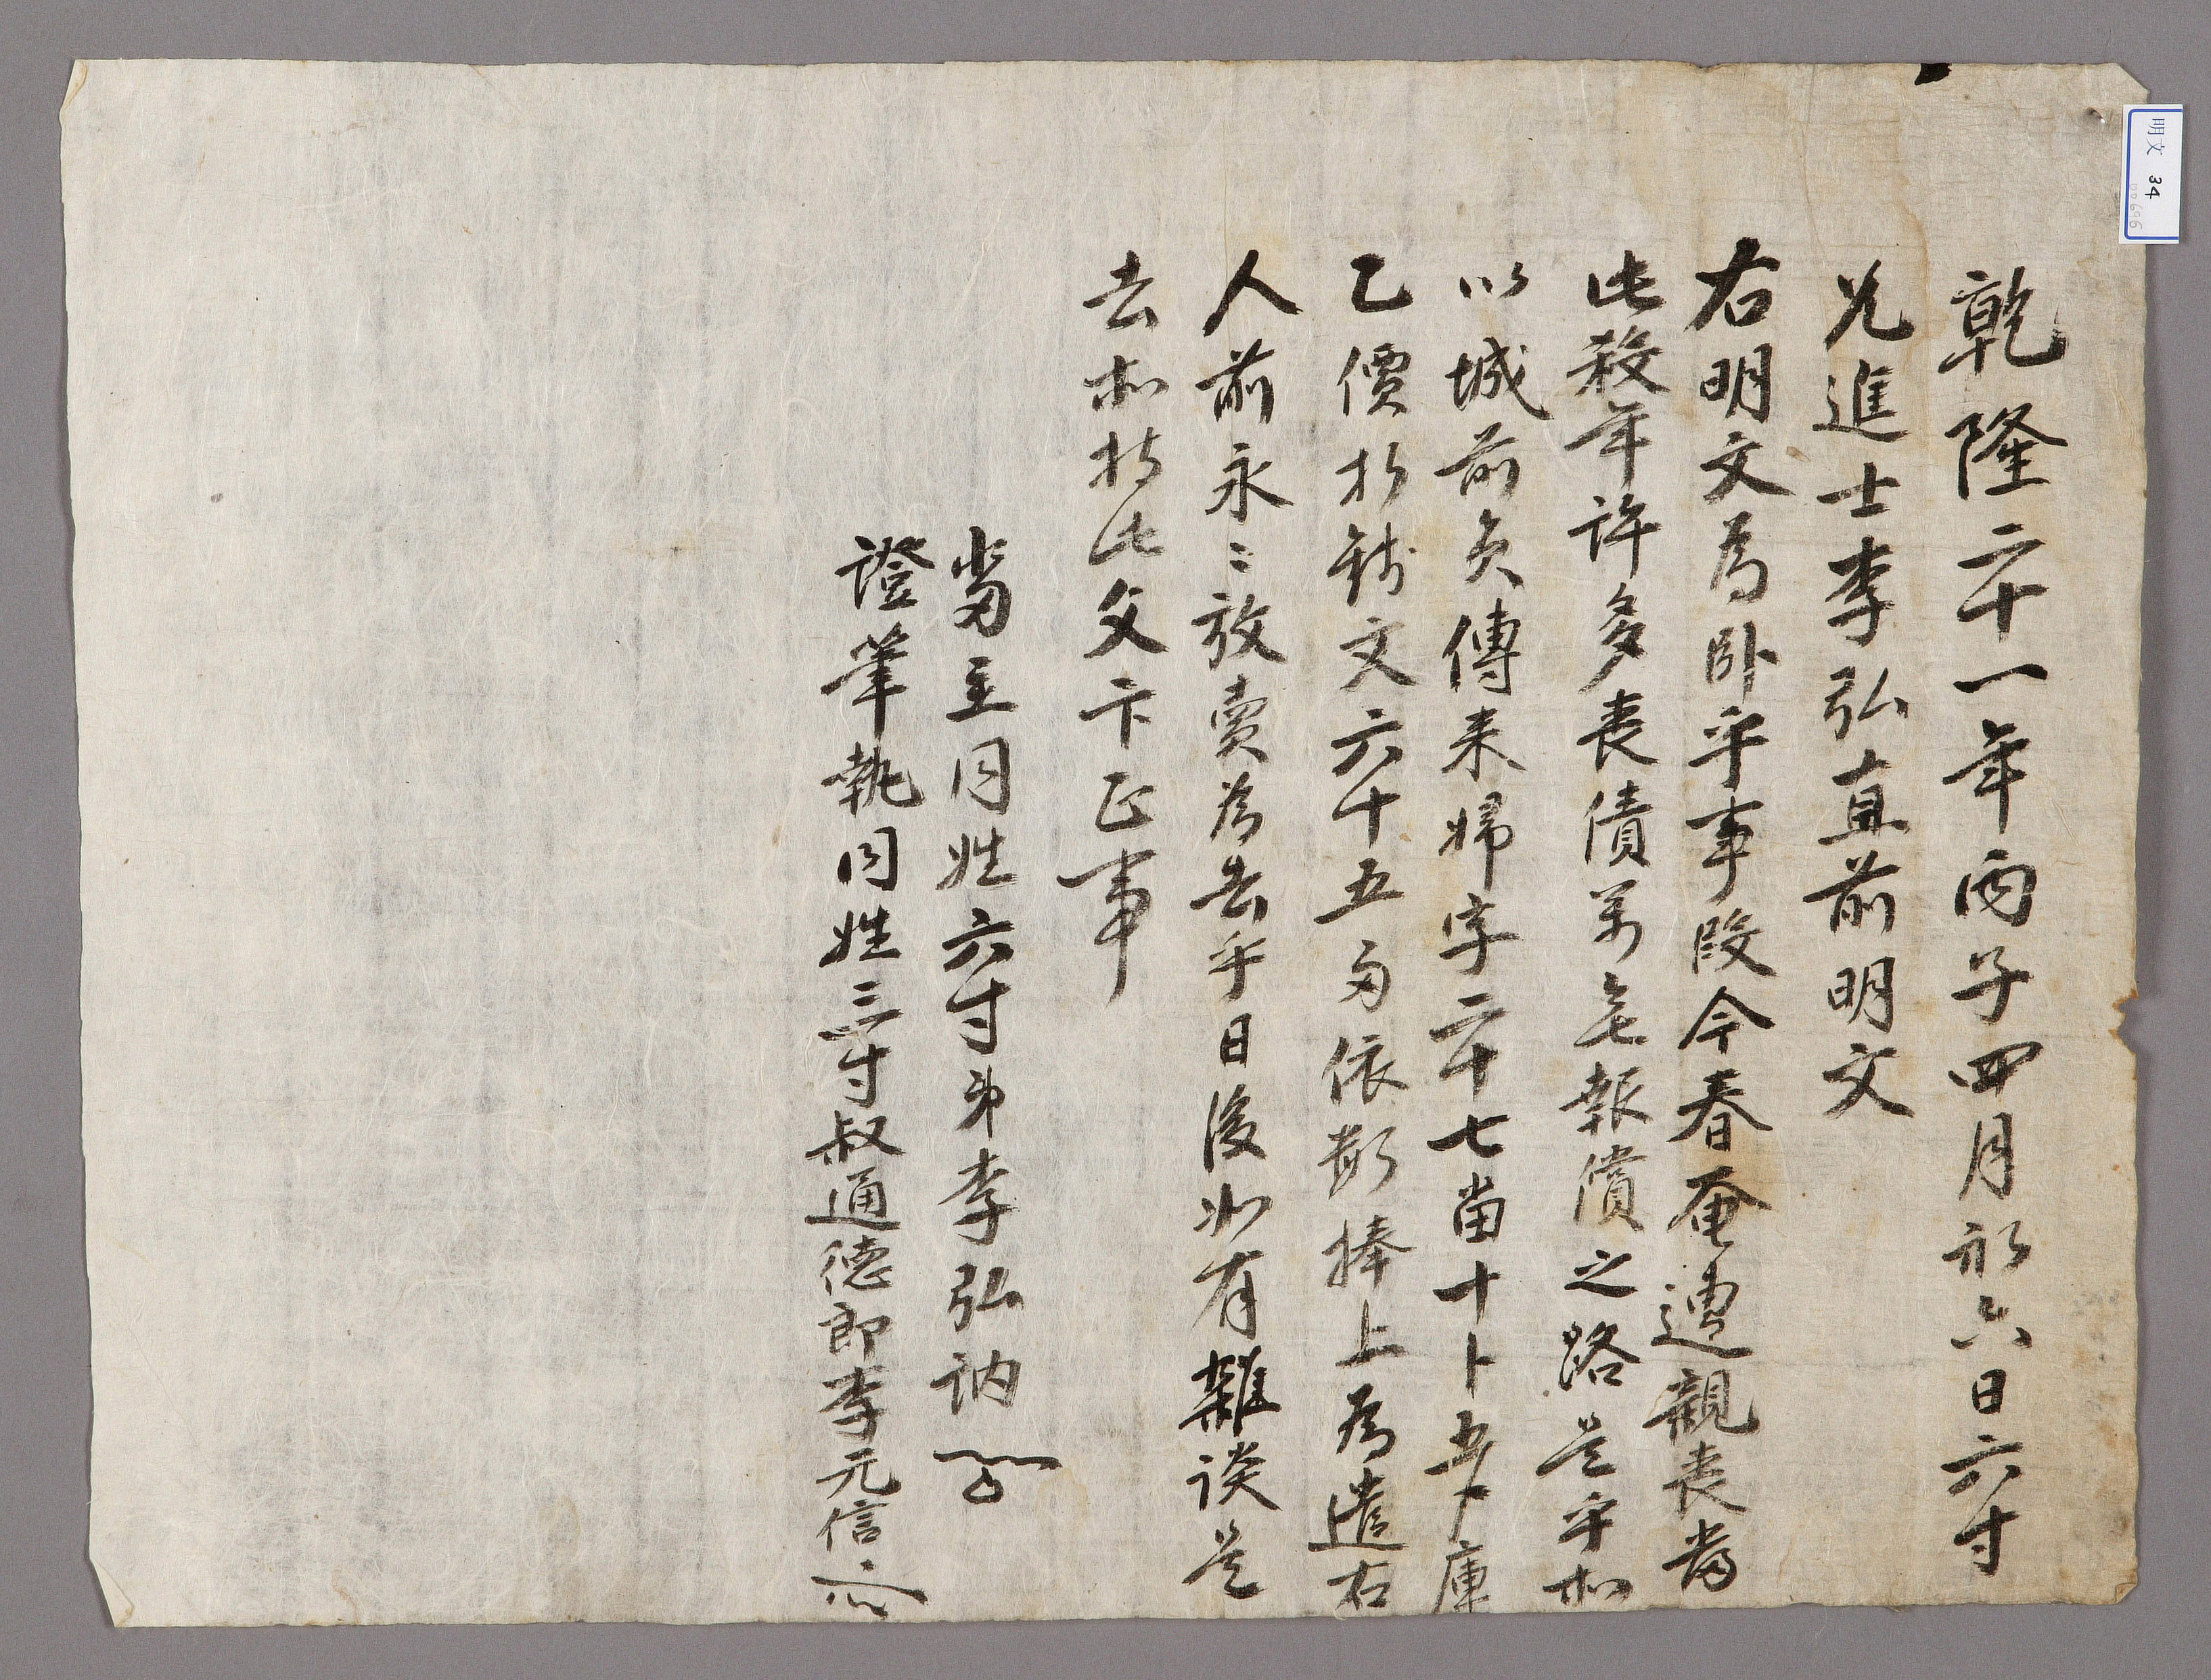 乾隆二十一年丙子四月初六日六寸
兄進士李弘直前明文
右明文爲卧乎事段今春奄遭親喪當
此殺年許多喪債萬無報償之路是乎等
以城前員傳來歸字二十七畓十卜五卜庫
乙價折錢文六十五兩依數捧上爲遣右
人前永〻放賣爲去乎日後如有雜談是
去等持此文卞正事
畓主同姓六寸弟李弘訥
證筆執同姓三寸叔通德郎李元信
明文 34